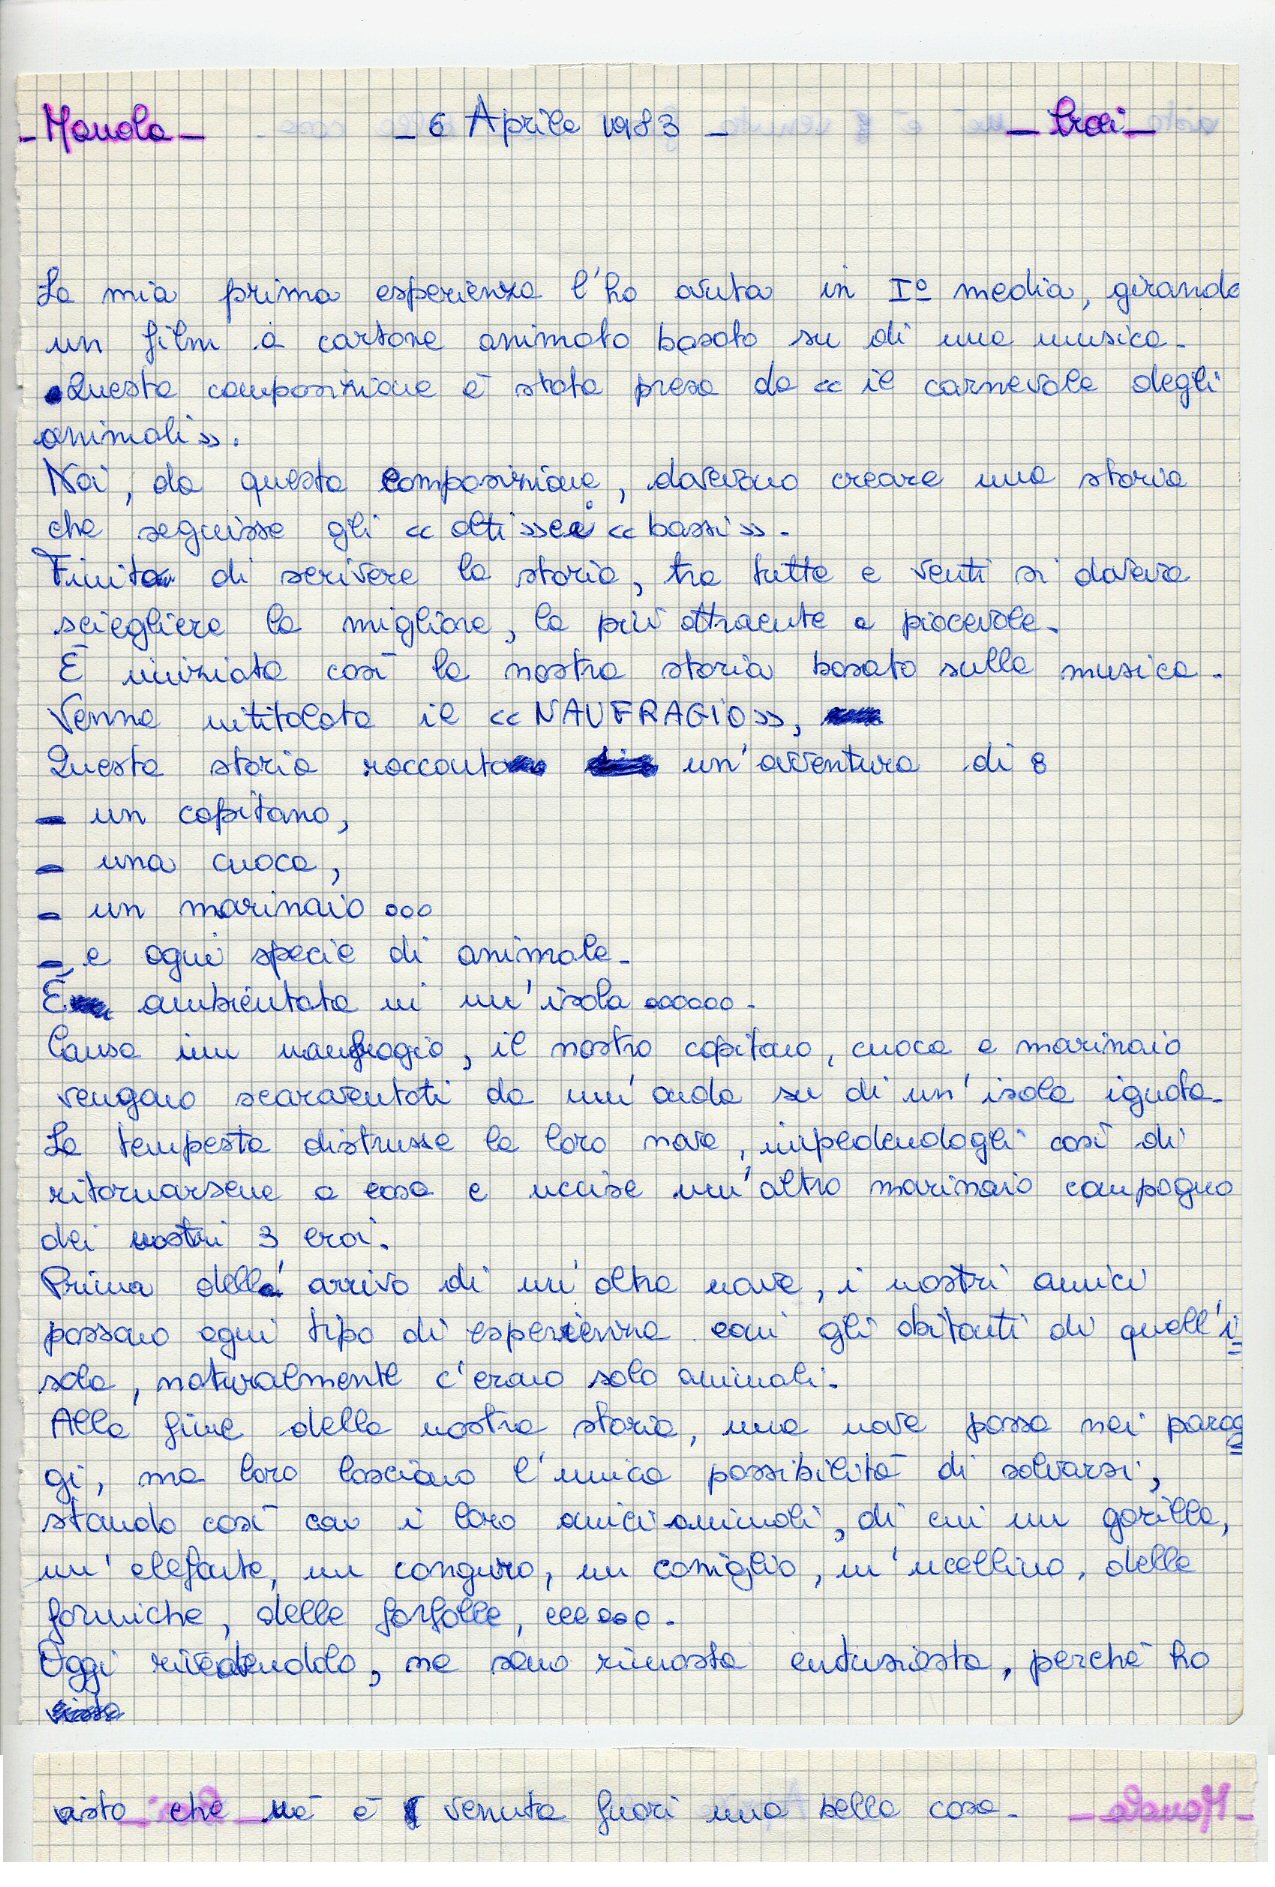 - Manola - - 6 Aprile 1983 - - Croci -
La mia prima esperienza l'ho avuta in Iª media, girando
un film a cartone animato basato su di una musica.
Questa composizione è stata presa da « il carnevale degli
animali».
Noi, da questa composizione, dovevamo creare una storia
che seguisse gli « alti »e i « bassi».
Finito di scrivere la storia, tra tutte e venti si doveva
sciegliere la migliore, la più attraente e piacevole.
È iniziata così la nostra storia basato sulla musica.
Venne intitolata il «NAUFRAGIO»,
Questa storia racconta un'avventura di 8
- un capitano,
- una cuoca,
- un marinaio ooo
- e ogni specie di animale.
È ambientata in un'isola oooooo.
Causa un naufragio, il nostro capitano, cuoca e marinaio
vengano scaraventati da un'onda su di un'isola ignota.
La tempesta distrusse la loro nave, impedendogli così di
ritornarsene a casa e uccise un'altro marinaio compagno
dei nostri 3 eroi.
Prima dell' arrivo di un'altra nave, i nostri amici
passano ogni tipo di esperienza con gli abitanti di quell'i
sola, naturalmente c'erano solo animali.
Alla fine della nostra storia, una nave passa nei parag
gi, ma loro lasciano l'unica possibilità di salvarsi,
stando così con i loro amici animali, di cui un gorilla,
un'elefante, un canguro, un coniglio, un'ucellino, delle
formiche, delle farfalle, ecc ooo.
Oggi rivedendolo, ne sono rimasta entusiasta, perchè ho
visto
visto che né è venuta fuori una bella cosa.